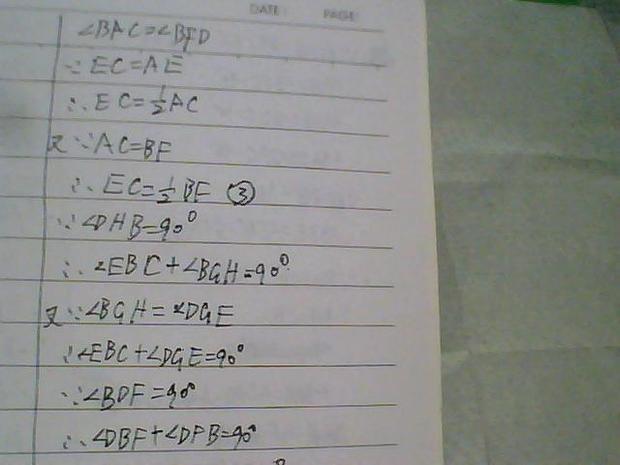 DATE: PAGE:
∠BAC=∠BFD
∵EC=AE
∴EC=½AC
又∵AC=BF
∴EC=½BF ③
∵∠DHB=90°
∴∠EBC+∠BGH=90°
又∵∠BGH=∠DGE
∴∠EBC+∠DGE=90°
∵∠BDF=90°
∴∠DBF+∠DFB=90°